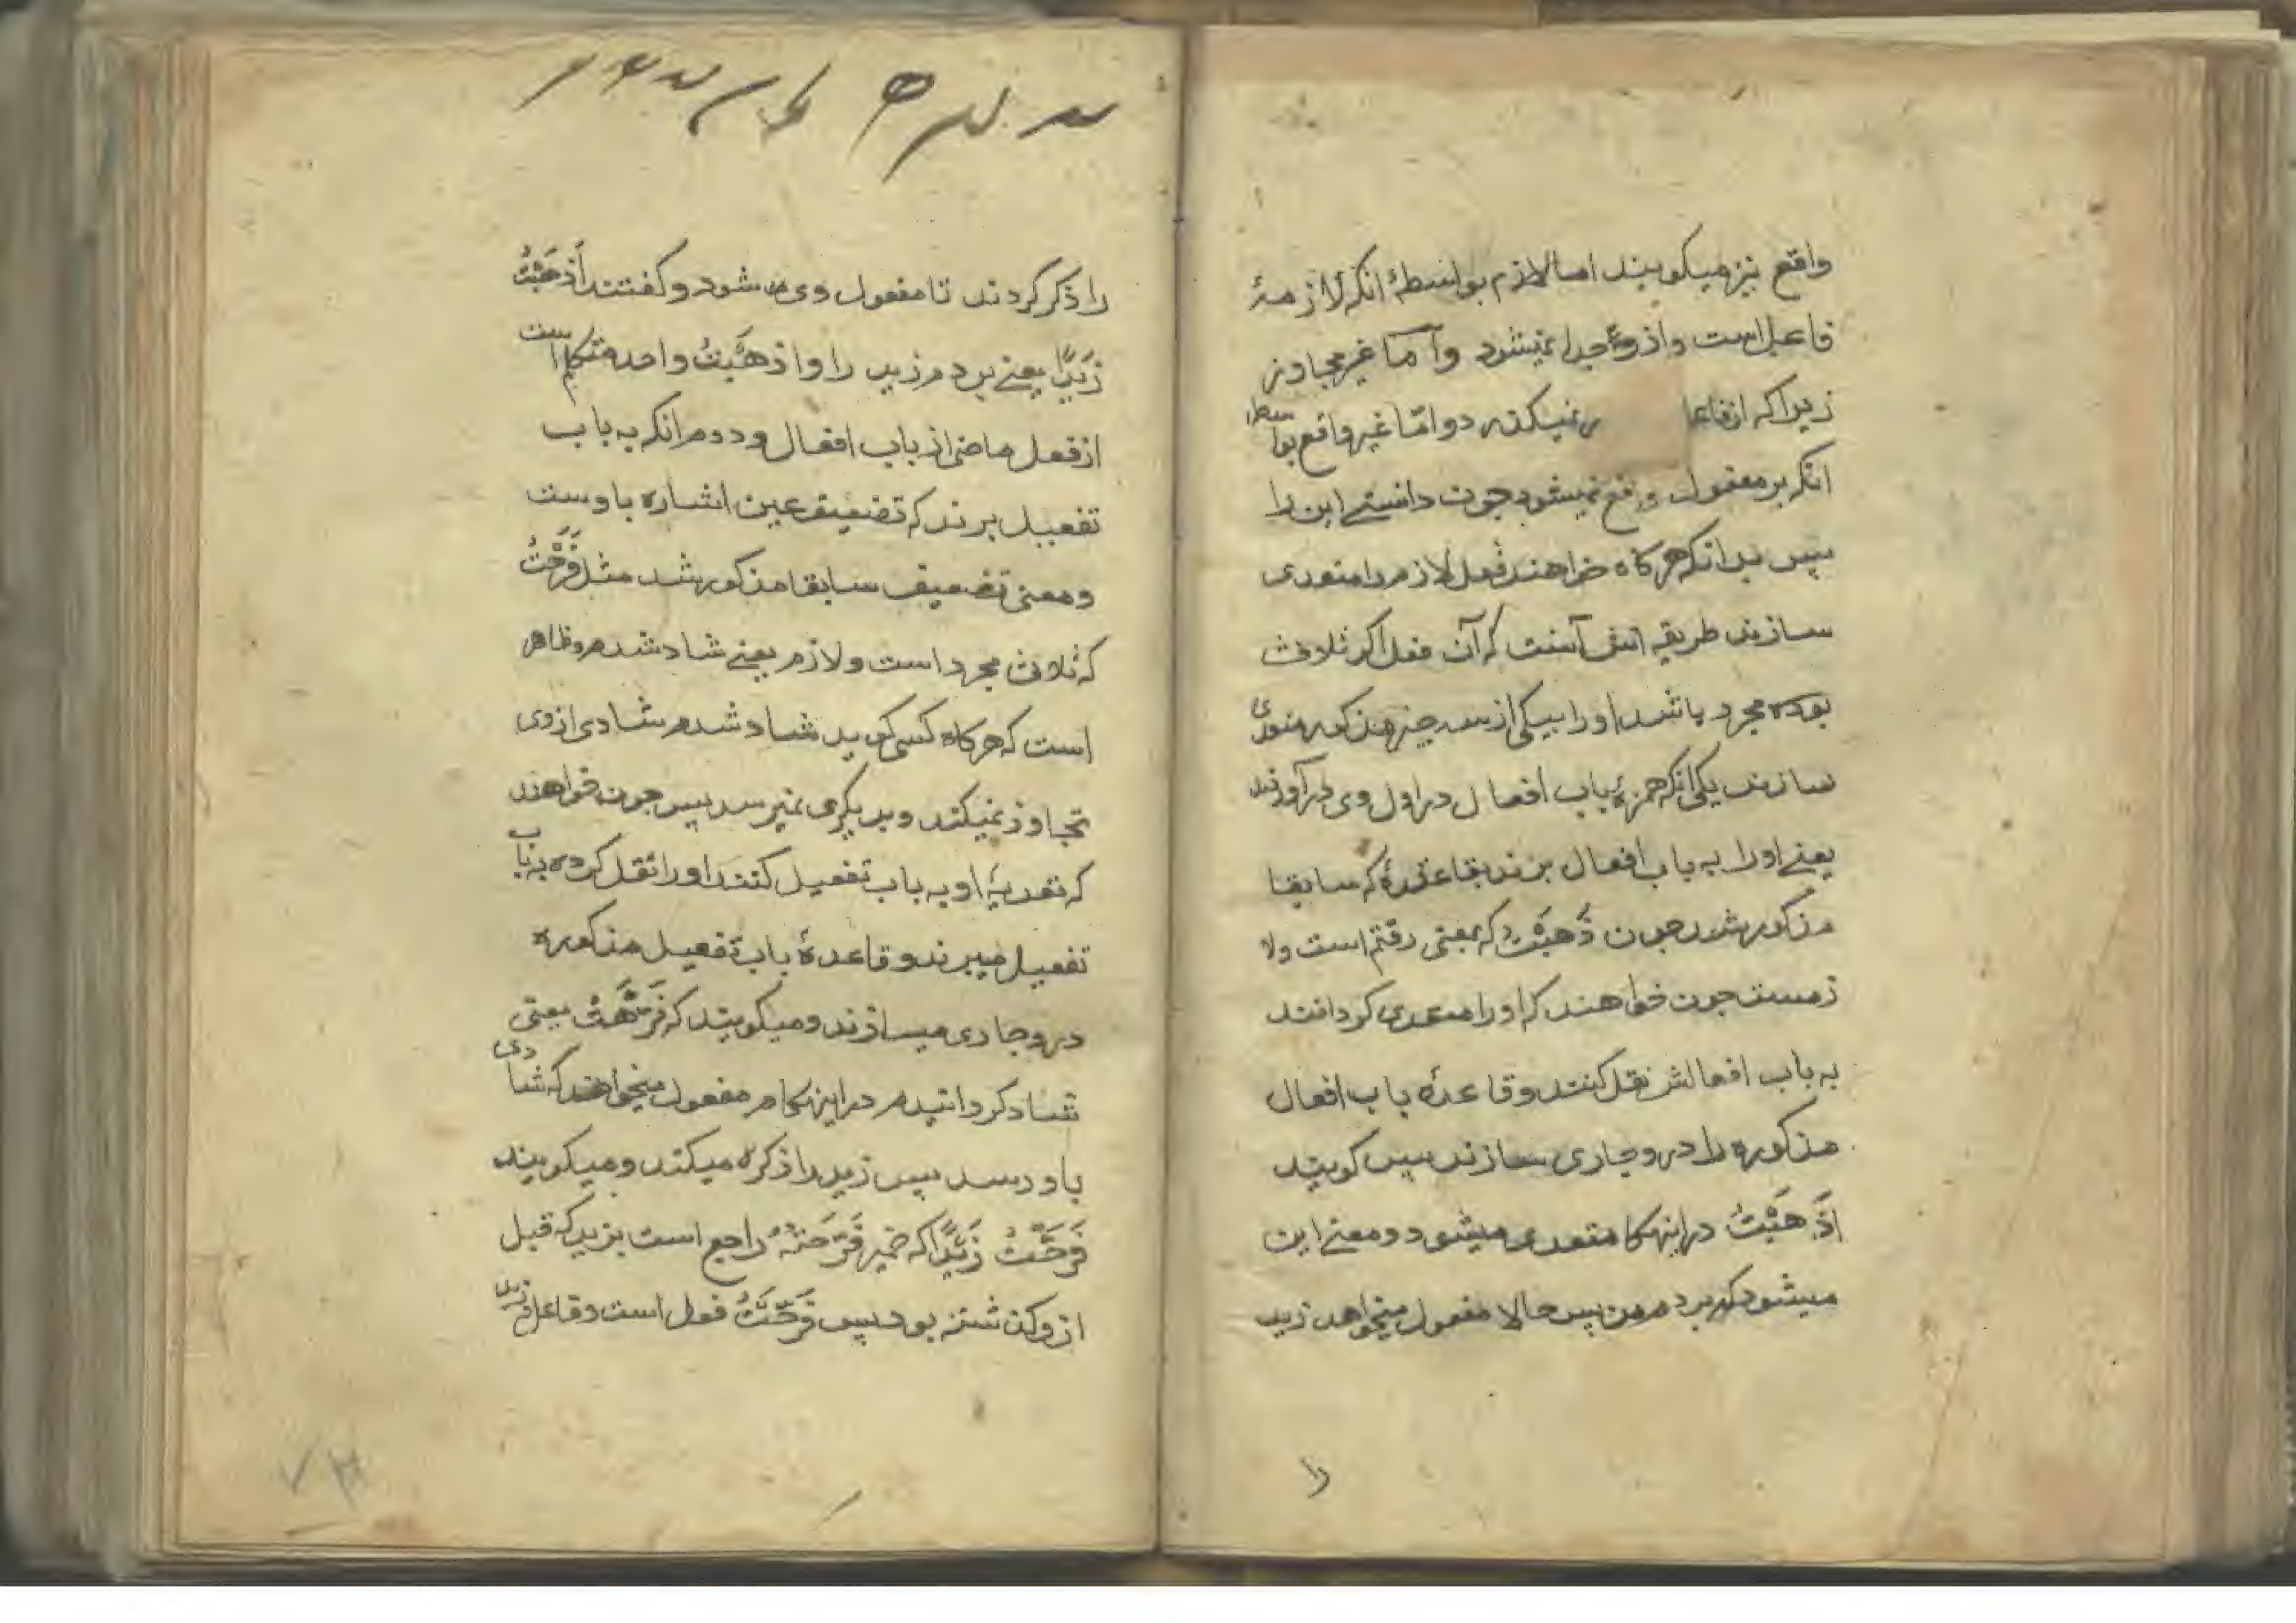 واقع نیز میکویند اما لازم بواسطهٔ انکه لازمهٔ
فاعل است و از وی جدا نمیشود و آما غیر مجاوز
زیرا که از فاعل نمیکذرد و امّا غیر واقع بواسطه
انکه بر مفعول واقع نمیشود جون دانستے این را
سپس بدانکه هرکاه خواهند فعل لازم را متعدی
سازند طریقه اش آنست که آن فعل اکر ثلاثی
بوده مجرد باشد او را بیکی از سه چیز مذکور متعدی
سازند یکی انکه همزهٔ باب افعال در اول وی درآورند
یعنے او را به باب افعال برند بقاعدهٔ که سابقا
مذکور شد جون ذَهَبْتُ که بمعنی رفتم است ولا
زمست جون خواهند که او را متعدی کردانند
به باب افعالش نقل کنند و قاعدهٔ باب افعال
مذکوره را در و جاری سازند سپس کویند
اَذْهَبْتُ در اینهکام متعدی میشود و معنے این
میشود که بردم من پس حالا مفعول میخواهد زید
را
را ذکر کردند تا مفعول وی شود و کفتند اَذْهَبْتُ
زَیْدًا یعنے بردم زید را و اذهَبْتُ واحد متکلم است
از فعل ماضی از باب افعال و دوم انکه به باب
تفعیل برند که تضعیف عین اشاره باوست
و معنی تضعیف سابقا مذکور شد مثل فَرَحْتُ
که ثلاثی مجرد است و لازم یعنے شاد شدم و ظاهر
است که هرکاه کسی کوید شاد شدم شادی از وی
تجاوز نمیکند و بدیکری نمیرسد پس جون خواهند
که تعدیهٔ او به باب تفعیل کنند او را نقل کرده به باب
تفعیل میبرند و قاعدهٔ باب تفعیل مذکوره
در و جاری میسازند و میکویند که فَرَّحْتُ یعنی
شاد کردانیدم در اینهکام مفعول میخواهند که شادی
باو رسد سپس زید را ذکر میکند و میکویند
فَرَّحْتُ زَیْدًا که ضمیر فَرَّحْتُهُ راجع است بزید که قبل
از و کذشته بود پس فَرَّحْتُ فعل است و فاعل زید